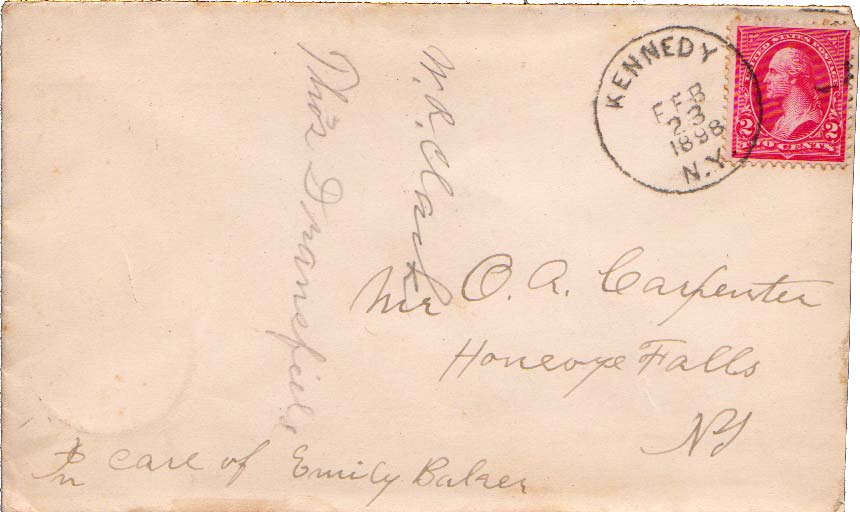 KENNEDY
FEB
23
1898
N.Y.
UNITED STATES POSTAGE
2 2
TWO CENTS
W. R. Clark
Tho's Dransfield
Mr O. A. Carpenter
Honeoye Falls
NY
In care of Emily Baker